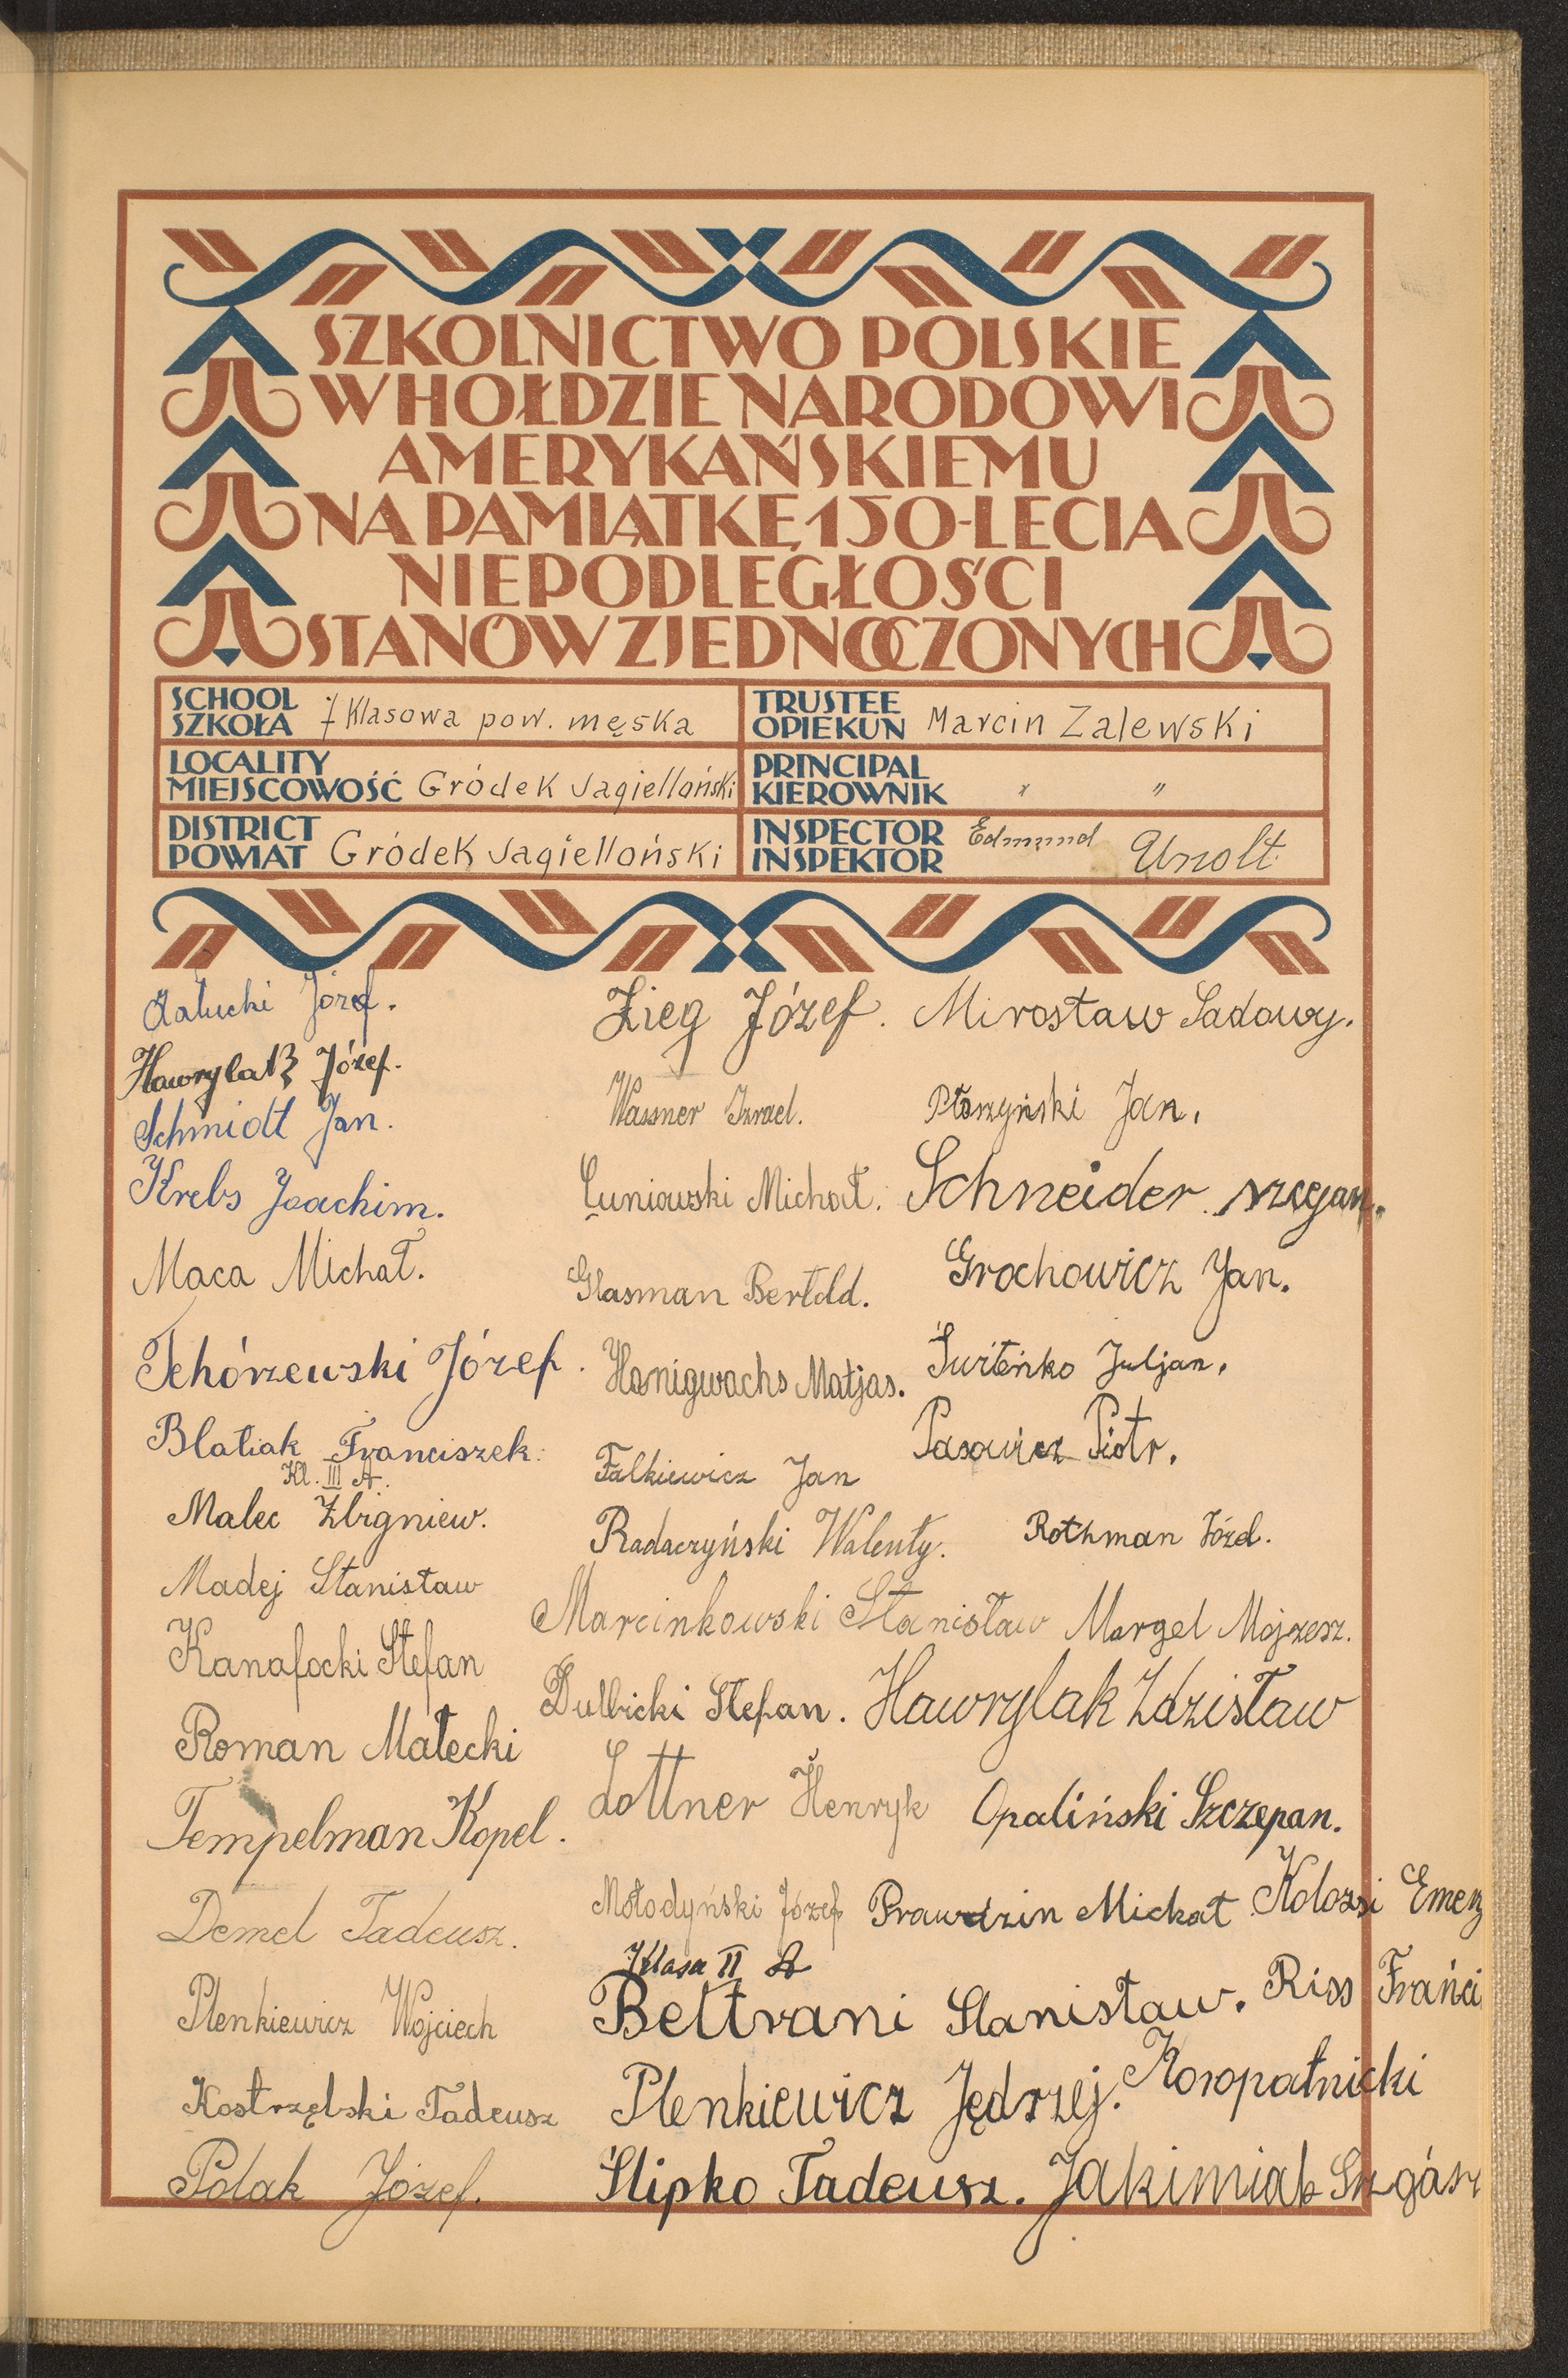 SZKOLNICTWO POLSKIE
W HOŁDZIE NARODOWI
AMERYKAŃSKIEMU
NA PAMIĄTKĘ 150-LECIA
NIEPODLEGŁOŚCI
STANÓW ZJEDNOCZONYCH
SCHOOL
SZKOŁA 7 Klasowa pow. męska
TRUSTEE
OPIEKUN Marcin Zalewski
LOCALITY
MIEJSCOWOŚĆ Gródek Jagielloński
PRINCIPAL
KIEROWNIK " "
DISTRICT
POWIAT Gródek Jagielloński
INSPECTOR
INSPEKTOR Edmund Unolt
Załucki Józef.
Hawrylak Józef.
Schmidt Jan.
Krebs Joachim.
Maca Michał.
Tchórzewski Józef.
Blatiak Franciszek.
Kl. III A.
Malec Zbigniew.
Madej Stanisław
Kanafocki Stefan
Roman Małecki
Tempelman Kopel.
Demel Tadeusz.
Plenkiewicz Wojciech
Kostrzębski Tadeusz
Polak Józef.
Zieg Józef.
Wassner Izrael.
Łuniowski Michał.
Glasman Bertold.
Honigwachs Matjas.
Falkiewicz Jan
Radaczyński Walenty.
Marcinkowski Stanisław
Dulbicki Stefan.
Lottner Henryk
Mołodyński Józef
Klasa II A
Beltrani Stanisław.
Plenkiewicz Jędrzej.
Ślipko Tadeusz.
Mirosław Sadowy.
Płoszyński Jan.
Schneider
Grochowicz Jan.
Świteńko Juljan.
Pasowicz Piotr.
Rothman Józef.
Margel Mojzesz.
Hawrylak Zdzisław
Opaliński Szczepan.
Prawdzin Michał
Kolozsi Emer
Riss Franci
Koropatnicki
Jakimiak